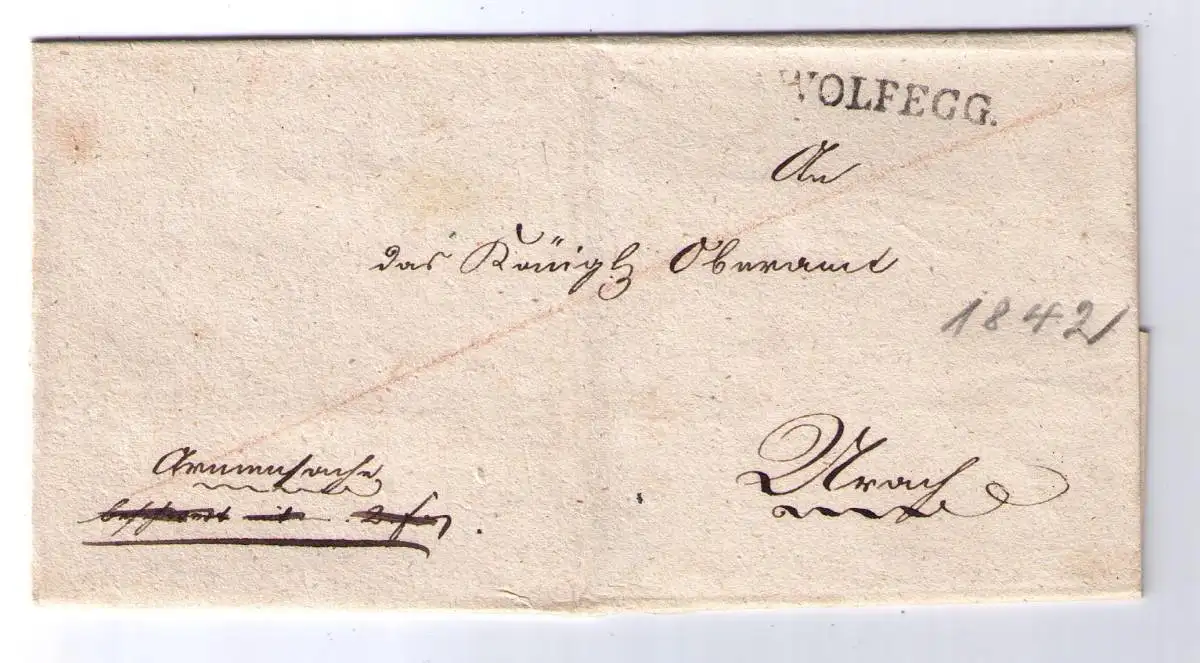 WOLFEGG.
An
das Königl Oberamt
1842
Urach
Armensache